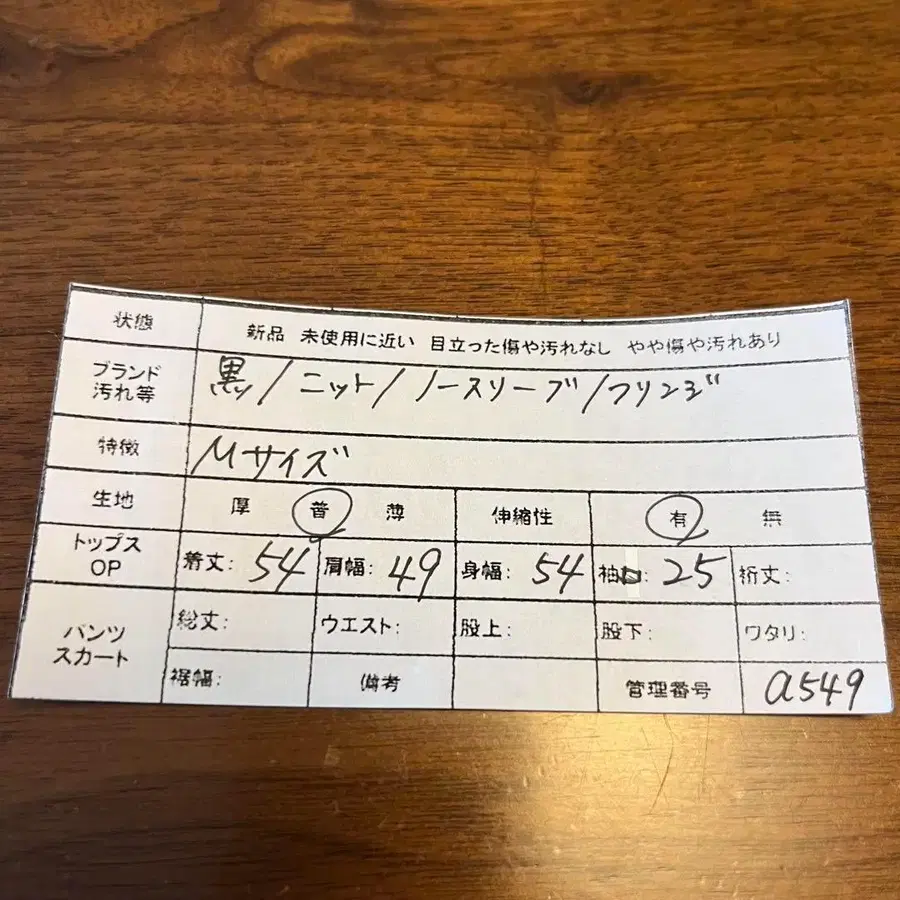 状態 新品 未使用に近い 目立った傷や汚れなし やや傷や汚れあり
ブランド 黒/ニット/ノースリーブ/フリンジ
汚れ等
特徴 Mサイズ
生地 厚 普 薄 伸縮性 有 無
トップス 着丈: 54 肩幅: 49 身幅: 54 袖口: 25 裄丈:
OP
パンツ 総丈: ウエスト: 股上: 股下: ワタリ:
スカート
裾幅: 備考 管理番号 a549